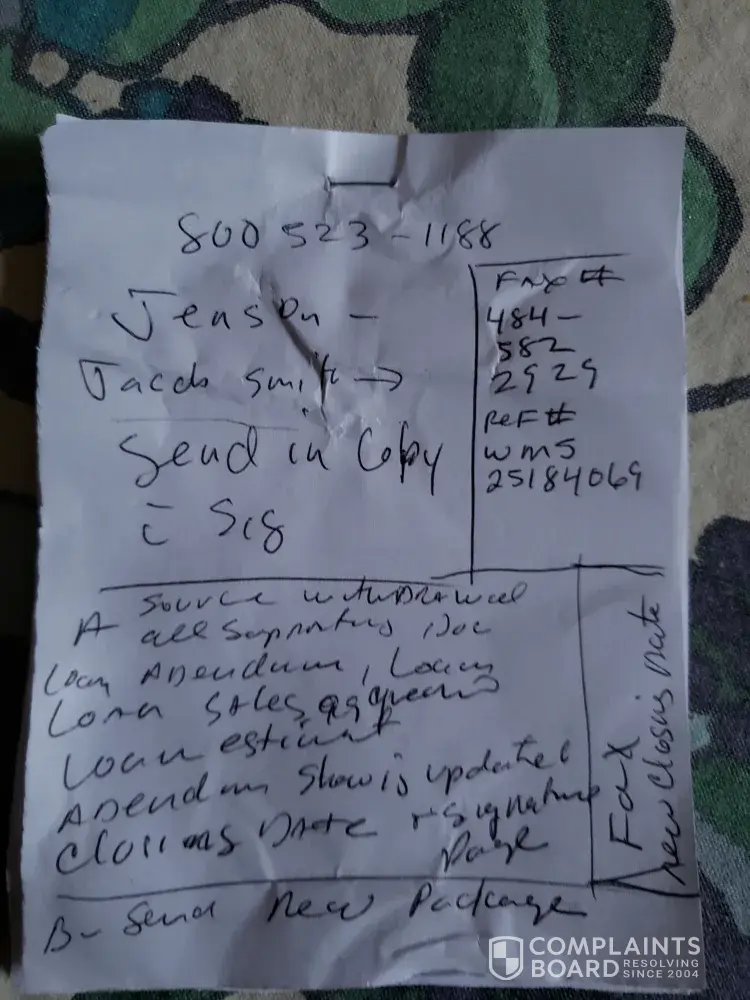 800 523-1188
Jenson -
Jacob smith →
Send in Copy
c̄ Sig
FAX #
484-
582
2929
Ref #
WMS
25184069
A source withdrawal
all supporting Doc
Loan ADendum, Loan
Loan sales, agreement
Loan estimat
ADendum Show is updated
Closing Date + signature
page
Fax
new closing date
B- Send new Package
COMPLAINTS
BOARD RESOLVING
SINCE 2004